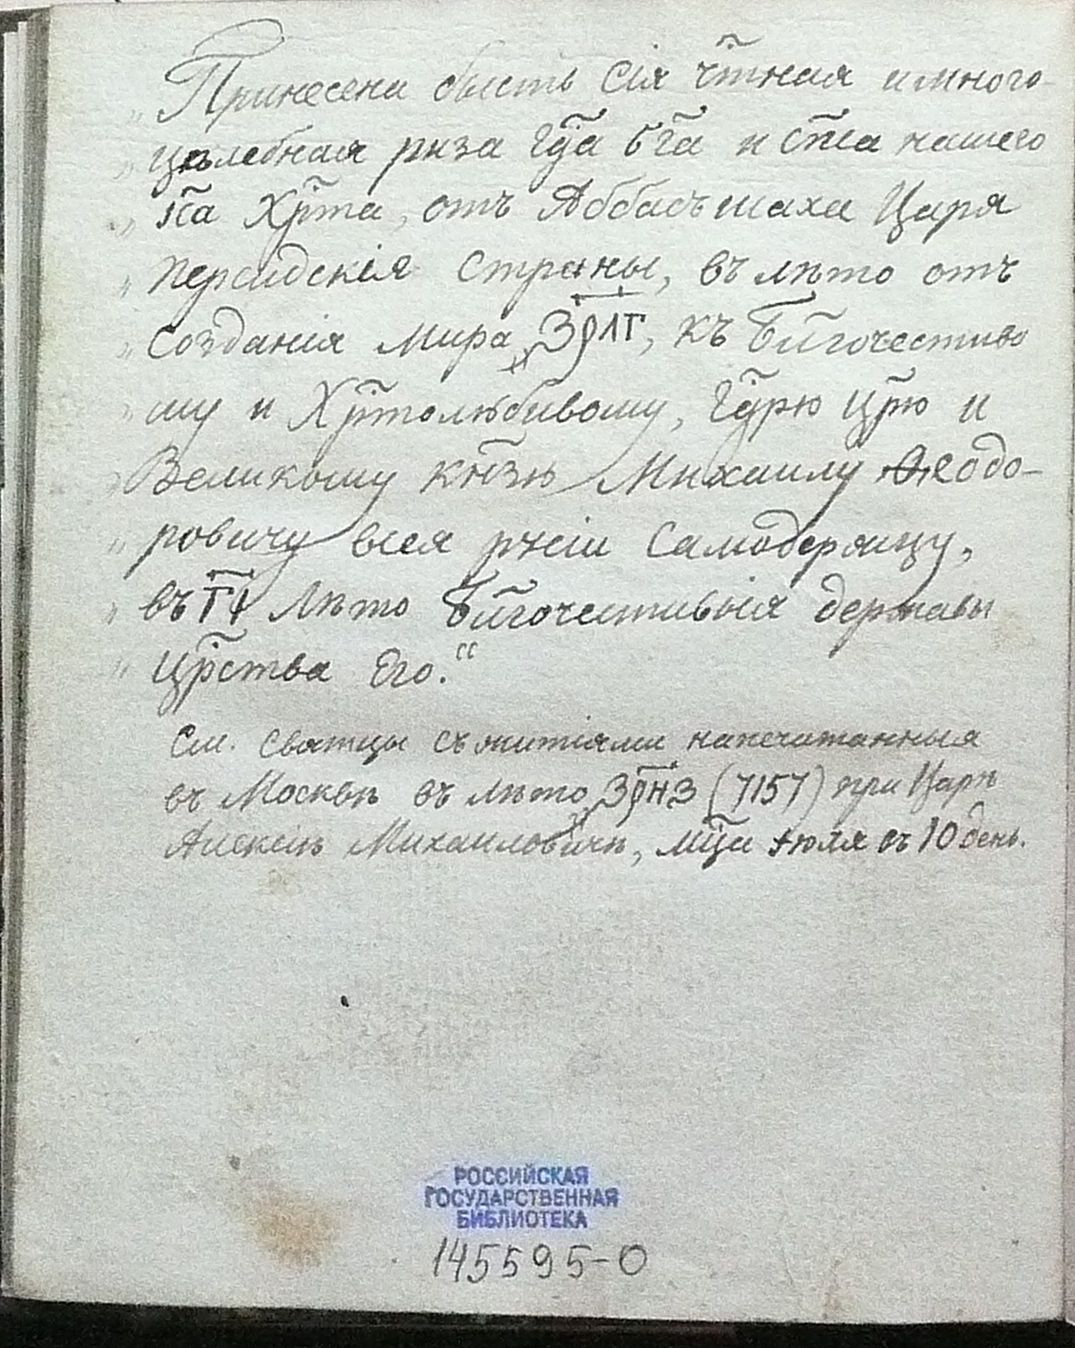 „ Принесена бысть Сія чт҃ная и много-
„ цѣлебная риза гд҃а бг҃а и сп҃са нашего
„ іс҃а Хрт҃а, отъ Аббасъ шаха Царя
„ персидскія страны, въ лѣто отъ
„ созданія мира ҂ЗРЛГ, къ бл҃гочестиво
„ му и Хрт҃олюбивому, гдр҃ю цр҃ю и
„ Великому кнз҃ю Михаилу Ѳеодо-
„ ровичу всея русіи Самодержцу,
„ въ ГІ лѣто бл҃гочестивыя державы
„ црс҃тва Его.“
См. святцы съ житіями напечатанныя
въ Москвѣ въ лѣто ҂ЗРНЗ (7157) при Царѣ
Алексіѣ Михаиловичѣ, мц҃а іюля въ 10 день.
РОССИЙСКАЯ
ГОСУДАРСТВЕННАЯ
БИБЛИОТЕКА
145595-О